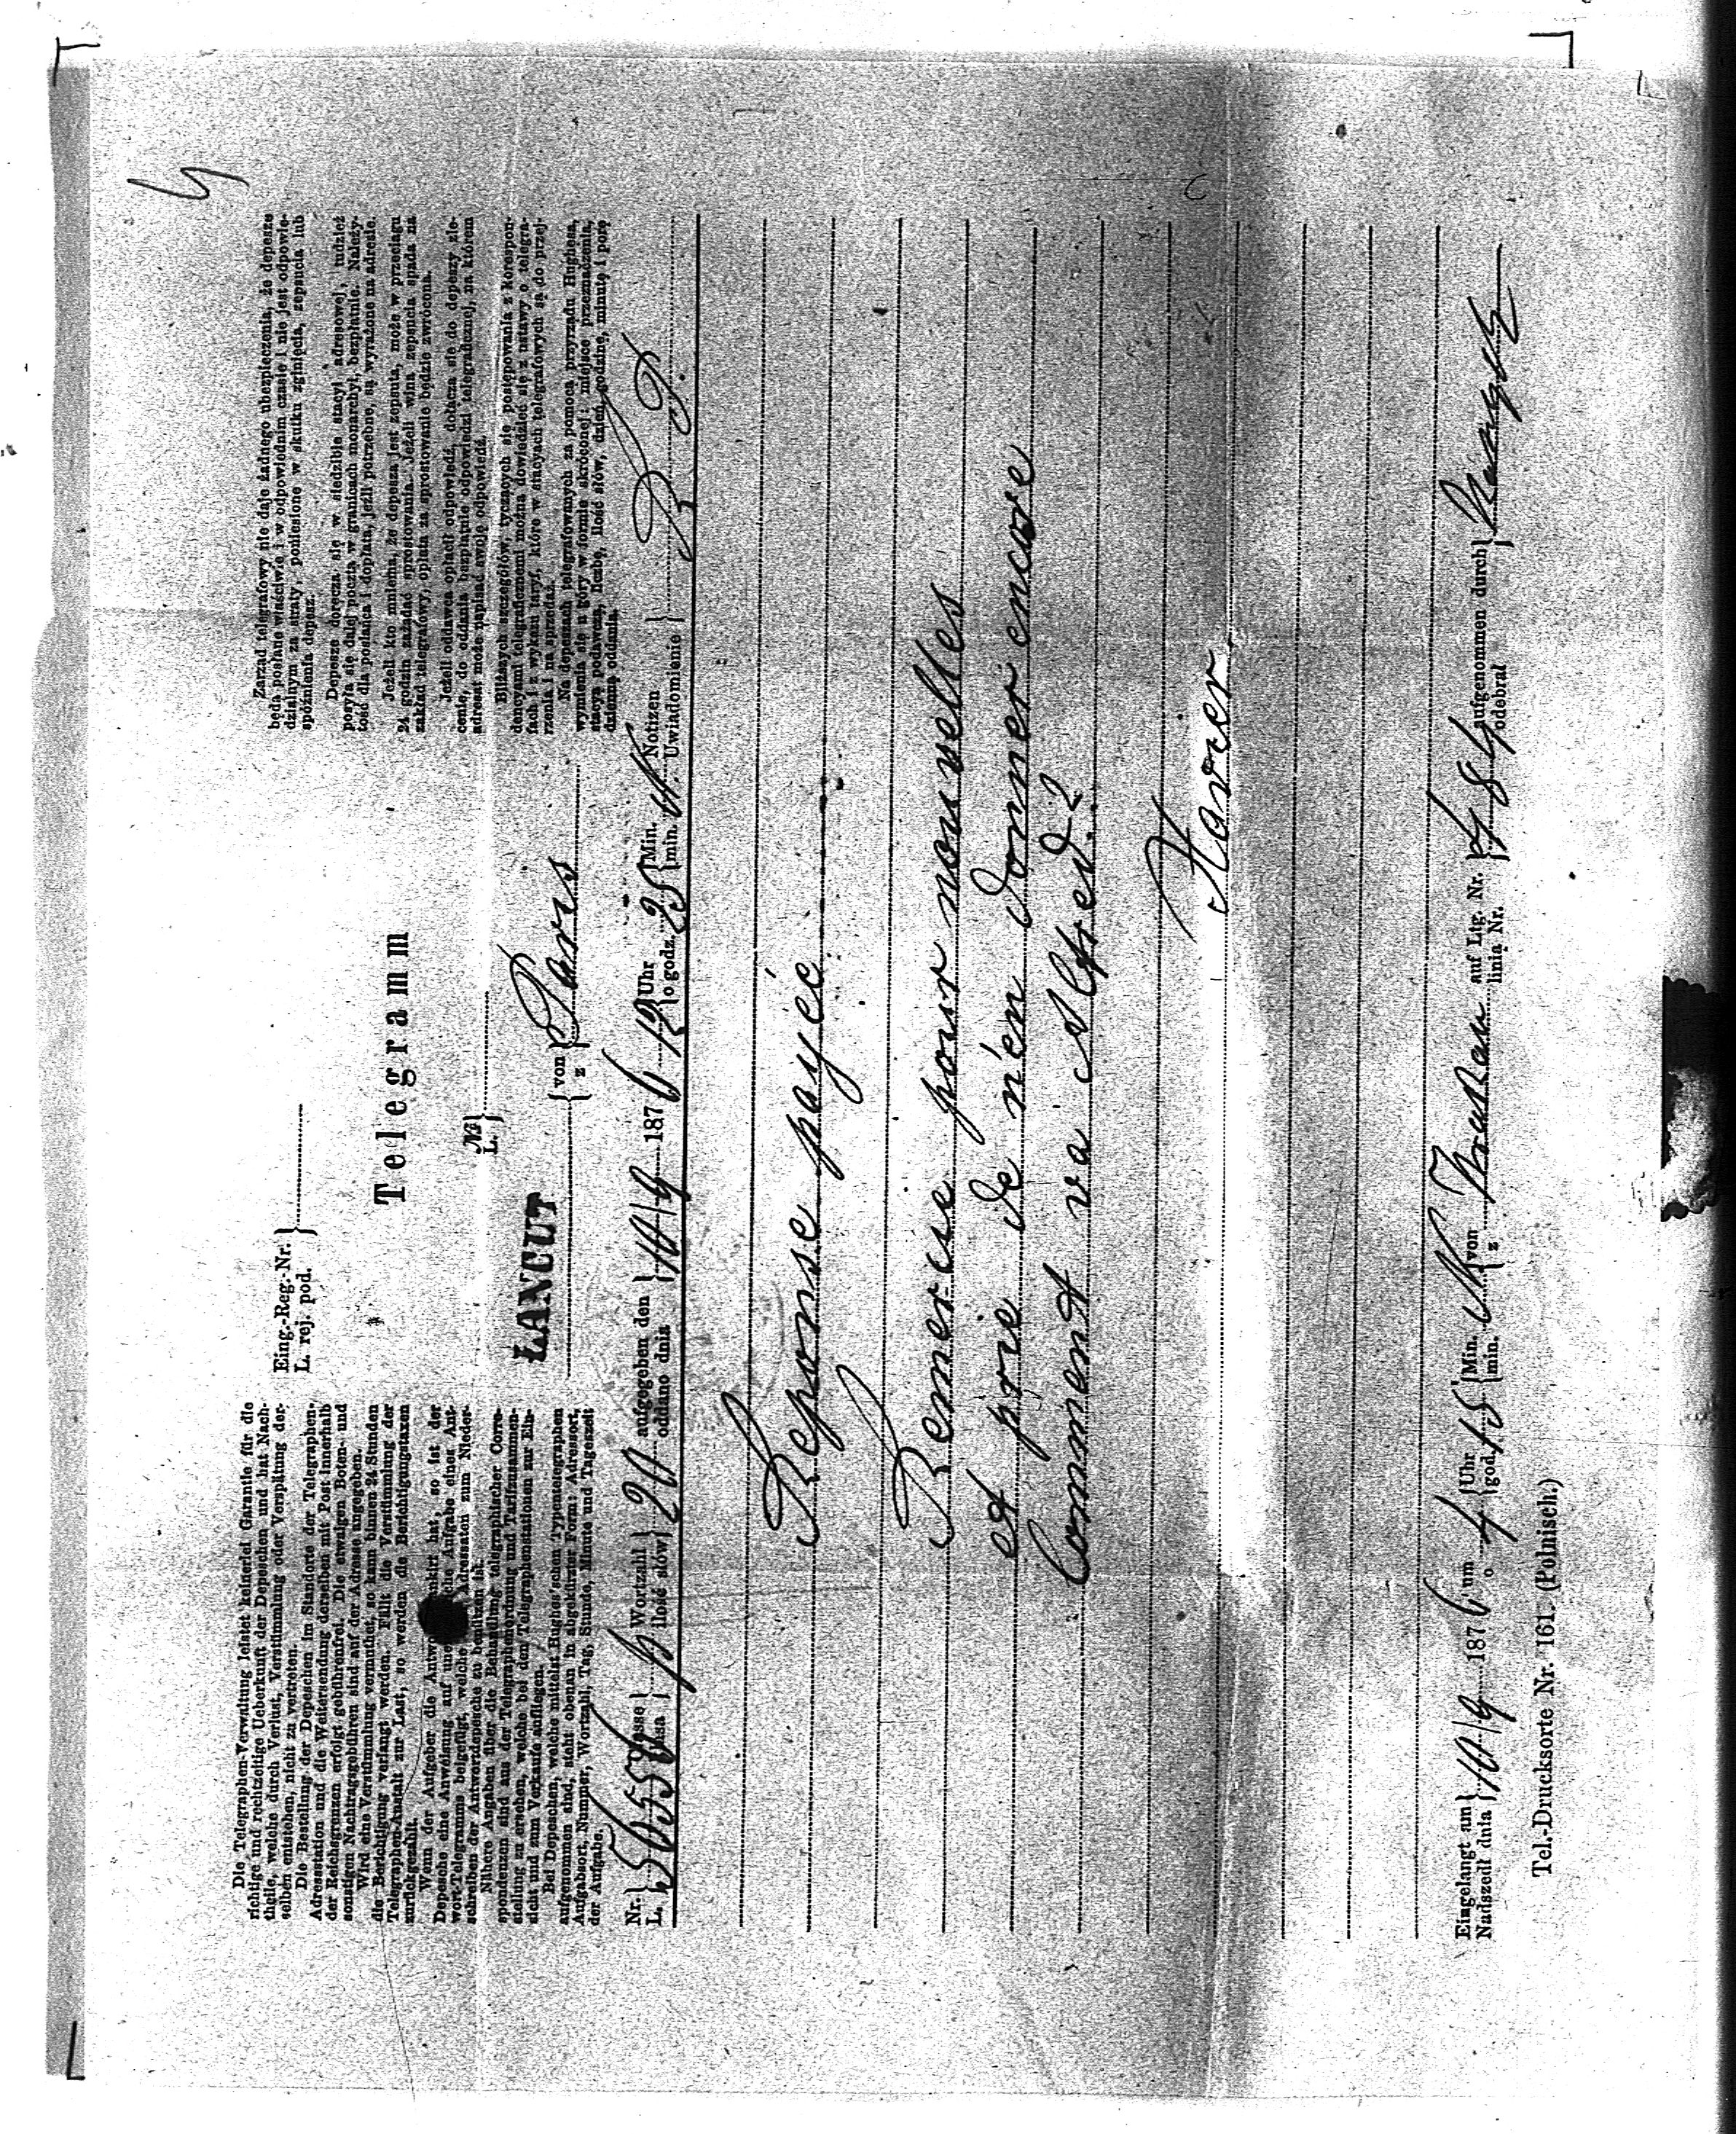 Die Telegraphen-Verwaltung leistet keinerlei Garantie für die
richtige und rechtzeitige Ueberkunft der Depeschen und hat Nach-
theile, welche durch Verlust, Verstümmlung oder Verspätung der-
selben entstehen, nicht zu vertreten.
Die Bestellung der Depeschen im Standorte der Telegraphen-
Adressstation und die Weitersendung derselben mit Post innerhalb
der Reichsgrenzen erfolgt gebührenfrei. Die etwaigen Boten- und
sonstigen Nachtragsgebühren sind auf der Adresse angegeben.
Wird eine Verstümmlung vermuthet, so kann binnen 24 Stunden
die Berichtigung verlangt werden. Fällt die Verstümmlung der
Telegraphen-Anstalt zur Last, so werden die Berichtigungstaxen
zurückgezahlt.
Wenn der Aufgeber die hat, so ist der
Depesche eine Anweisung auf die Aufgabe eines Ant-
wort-Telegramms beigefügt, welche Adressaten zum Nieder-
schreiben der Antwortdepesche zu benützen ist.
Nähere Angaben über die Behandlung telegraphischer Corre-
spondenzen sind aus der Telegraphenordnung und Tarifzusammen-
stellung zu ersehen, welche bei den Telegraphenstationen zur Ein-
sicht und zum Verkaufe aufliegen.
Bei Depeschen, welche mittelst Hughes'schen Typentelegraphen
aufgenommen sind, steht obenan in abgekürzter Form: Adressort,
Aufgabsort, Nummer, Wortzahl, Tag, Stunde, Minute und Tageszeit
der Aufgabe.
Eing.-Reg.-Nr.
L. rej. pod.
Telegramm
Nr.
L.
ŁAŃCUT von z Paris
Zarząd telegrafowy nie daje żadnego ubezpieczenia, że depesze
będą posłane właściwie i w odpowiednim czasie i nie jest odpowie-
dzialnym za straty, poniesione w skutku zginięcia, zepsucia lub
spóźnienia depesz.
Depesze doręcza się w siedzibie stacyi adresowej, tudzież
posyła się dalej pocztą w granicach monarchyi bezpłatnie. Należy-
tość dla posłańca i dopłata, jeżli potrzebne, są wyrażone na adresie.
Jeżeli kto mniema, że depesza jest zepsuta, może w przeciągu
24 godzin zażądać sprostowania. Jeżeli wina zepsucia spada na
zakład telegrafowy, opłata za sprostowanie będzie zwrócona.
Jeżeli oddawca opłacił odpowiedź, dołącza się do depeszy zle-
cenie, do oddania bezpłatnie odpowiedzi telegraficznej, na którem
adresat może napisać swoję odpowiedź.
Bliższych szczegółów, tyczących się postępowania z korespon-
dencyami telegraficznemi można dowiedzieć się z ustawy o telegra-
fach i z wykazu taryf, które w stacyach telegrafowych są do przej-
rzenia i na sprzedaż.
Na depeszach telegrafowanych za pomocą przyrządu Hughesa,
wymienia się u góry w formie skróconej: miejsce przeznaczenia,
stacyą podawczą, liczbę, ilość słów, dzień, godzinę, minutę i porę
dzienną oddania.
Nr. L. 56558 Classe Klasa p Wortzahl ilość słów 20 aufgegeben den oddano dnia 10/9 1876 12 Uhr o godz. 25 Min. min. Notizen Uwiadomienie R P.
Reponse payée
Remercie pour nouvelles
et prie de n'en donner encore
Comment va Alfred?
Xavier
Eingelangt am Nadszedł dnia 10/9 1876 um o 4 Uhr god. 15 Min. min. von z Krakau auf Ltg. Nr. linią Nr. aufgenommen durch odebrał
Tel.-Drucksorte Nr. 161. (Polnisch.)